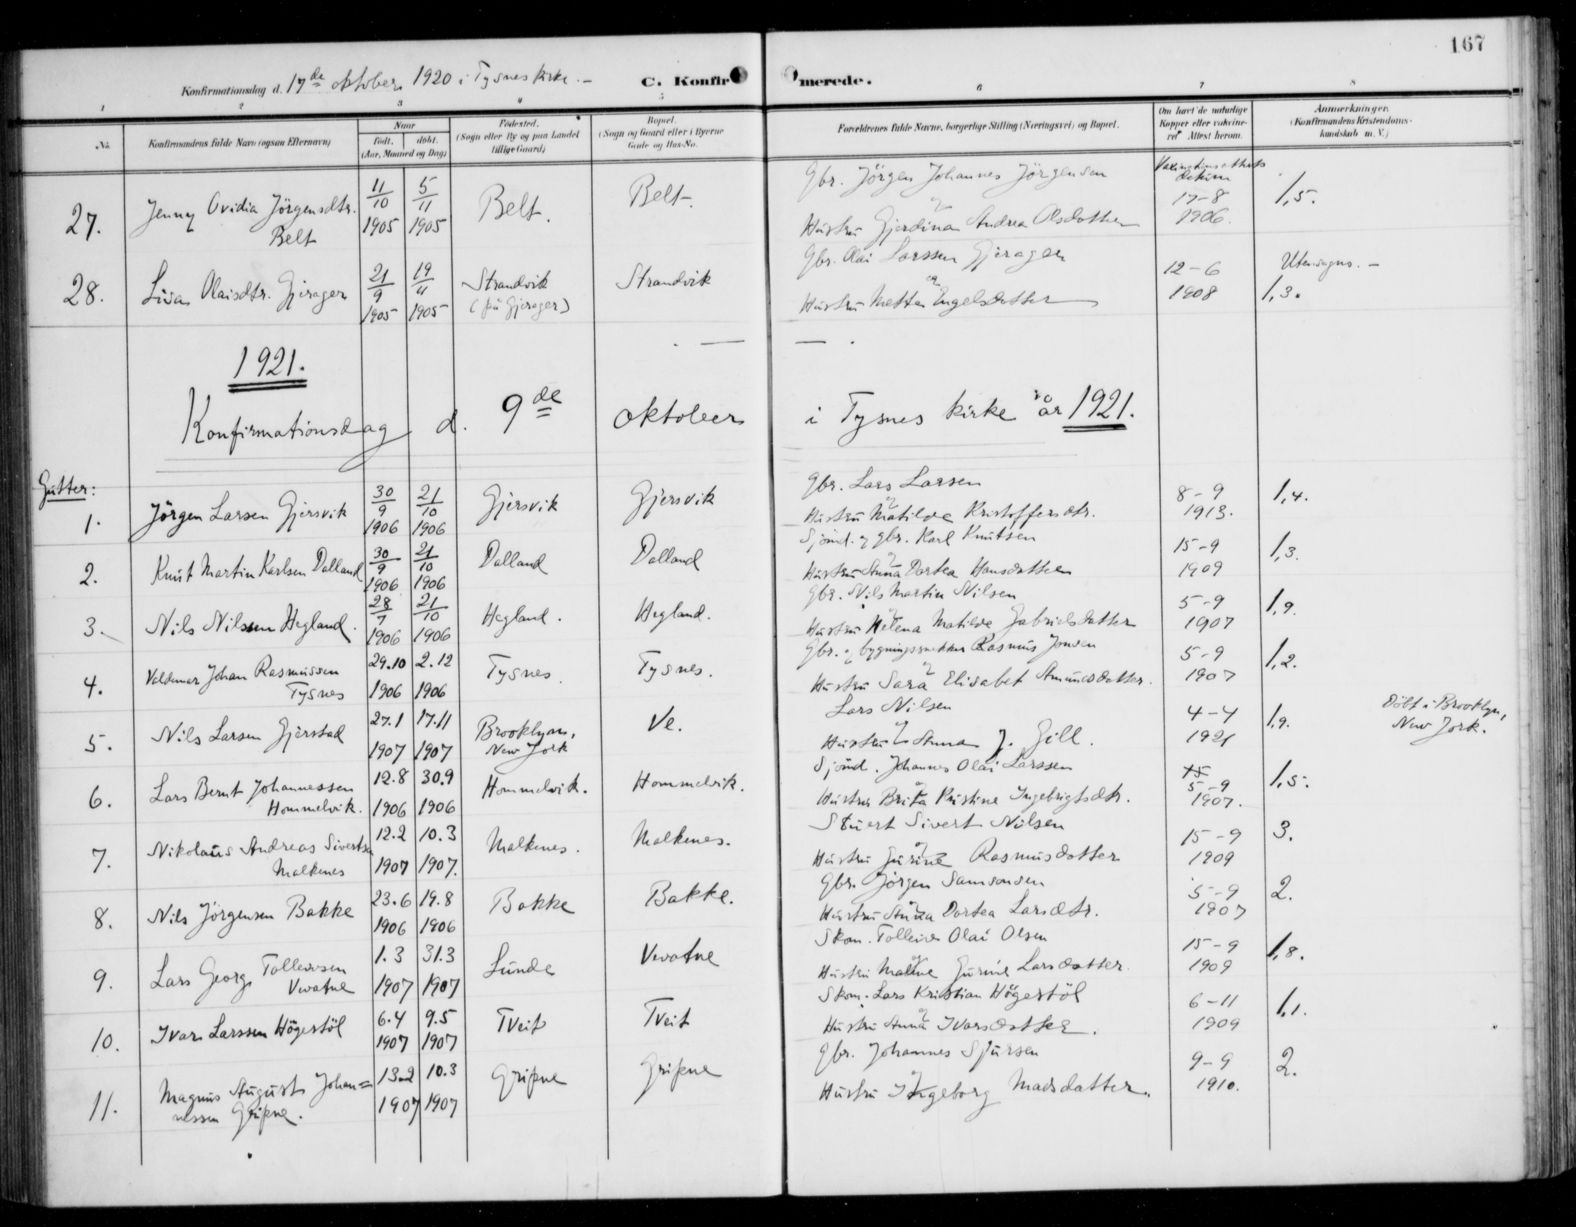 167
Konfirmationsdag d. 17de oktober 1920 i Tysnes kirke. –
C. Konfirmerede.
1 2 3 4 5 6 7 8
No.
Konfirmandens fulde Navn (ogsaa Efternavn)
Naar
født, døbt.
(Aar, Maaned og Dag)
Fødested.
(Sogn eller By og paa Landet tillige Gaard)
Bopæl.
(Sogn og Gaard eller i Byerne Gade og Hus-No.
Forældrenes fulde Navne, borgerlige Stilling (Næringsvei) og Bopæl.
Om havt de naturlige Kopper eller vaksineret Attest herom.
Anmerkninger.
(Konfirmandens Kristendomskundskab m. V.)
27. Jenny Ovidia Jörgensdtr. Belt
11/10 1905 5/11 1905
Belt. Belt.
Gbr. Jörgen Johannes Jörgensen
Hustru Gjerdina Andrea Olsdotter
17–8 1906.
1,5.
28. Lisa Olaisdtr. Gjerager
21/9 1905 19/11 1905
Strandvik (på Gjerager) Strandvik
Gbr. Olai Larssen Gjerager
og
Hustru Metta Engelsdotter
12–6 1908
Utensogns. –
1,3.
1921.
Konfirmationsdag d. 9de oktober i Tysnes kirke år 1921.
Gutter:
1. Jörgen Larsen Gjersvik
30/9 1906 21/10 1906
Gjersvik Gjersvik
Gbr. Lars Larsen
Hustru Matilde Kristoffersdtr.
8–9 1913.
1,4.
2. Knut Martin Karlsen Dalland
30/9 1906 21/10 1906
Dalland Dalland
Sjömd. og gbr. Karl Knutsen
Hustru Anna Dortea Hansdotter
15–9 1909
1,3.
3. Nils Nilssen Hegland.
28/7 1906 21/10 1906
Hegland. Hegland.
Gbr. Nils Martin Nilsen
Hustru Helena Matilde Gabrielsdotter
5–9 1907
1,9.
4. Valdemar Johan Rasmussen Tysnes
29.10 1906 2.12 1906
Tysnes. Tysnes.
Gbr. og bygningssnekker Rasmus Jonsen
Hustru Sara Elisabet Amundsdotter.
5–9 1907
1,2.
5. Nils Larsen Gjerstad
27.1 1907 17.11 1907
Brooklyn, New Jork Ve.
Lars Nilsen
Hustru Anna J. Gill.
4–4 1921
1,9.
Döbt i Brooklyn, New Jork.
6. Lars Bernt Johannessen Hommelvik.
12.8 1906 30.9 1906
Hommelvik. Hommelvik.
Sjömd. Johannes Olai Larssen
Hustru Brita Kristine Ingebrigtsdtr.
15
5–9 1907.
1,5.
7. Nikolaus Andreas Sivertsen Malkenes
12.2 1907 10.3 1907.
Malkenes. Malkenes.
Stuert Sivert Nilsen
Hustru Gurine Rasmusdotter
15–9 1909
3.
8. Nils Jörgensen Bakke
23.6 1906 19.8 1906
Bakke Bakke.
Gbr. Jörgen Samsonsen
Hustru Anna Dortea Larsdtr.
5–9 1907
2.
9. Lars Georg Tollevsen Vevatne
1.3 1907 31.3 1907
Lunde Vevatne
Skom. Tolleiv Olai Olsen
Hustru Malene Gurine Larsdotter.
15–9 1909
1,8.
10. Ivar Larssen Högestöl
6.4 1907 9.5 1907
Tveit Tveit
Skom. Lars Kristian Högestöl
Hustru Anna Ivarsdotter.
6–11 1909
1,1.
11. Magnus August Johannessen Gripne.
13.2 1907 10.3 1907
Gripne Gripne
Gbr. Johannes Sjursen
Hustru Ingeborg Madsdatter.
9–9 1910.
2.